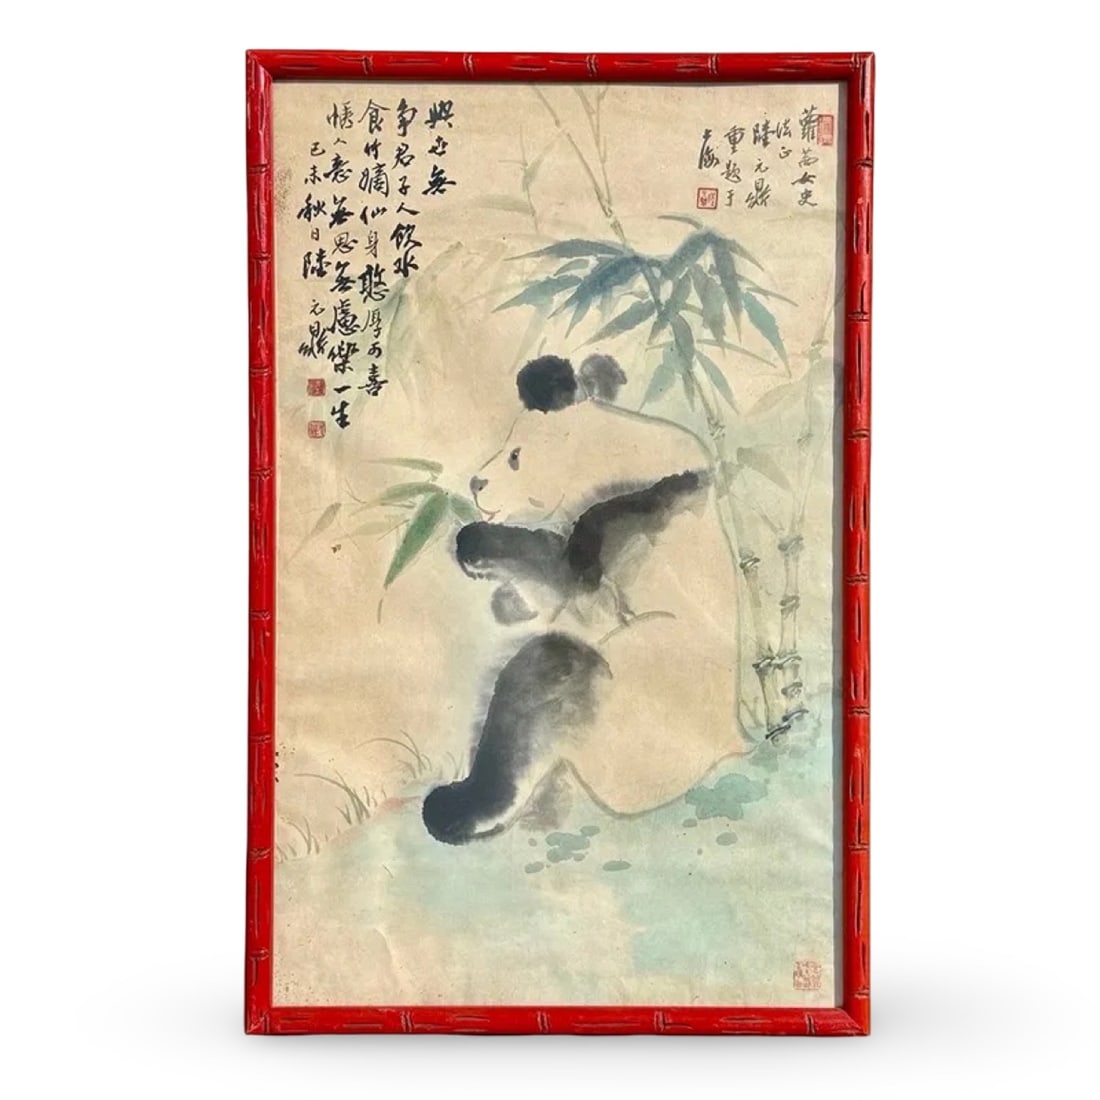 蘿茜女史
法正
陸元鼎
重題于
上海
與世無
争君子人飲水
食竹嫡仙身憨厚可喜
人意無思無慮樂一生
己未秋日陸元鼎